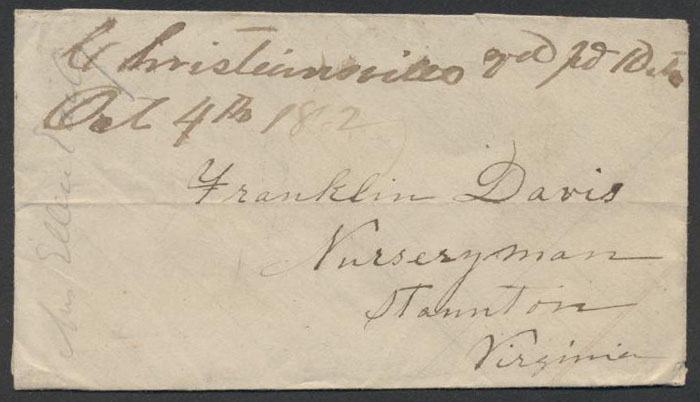 Christiansville pd 10cts
Oct 4th 1862
Franklin Davis
Nurseryman
Staunton
Virginia
Mrs Ellen